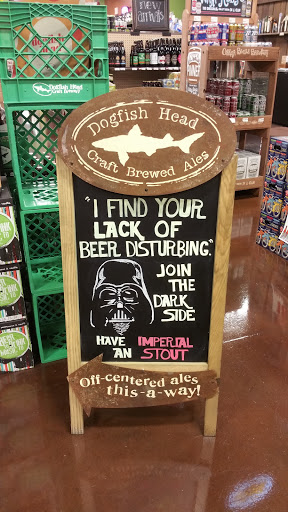 new arrivals
Dogfish Head
Craft Brewery
Dogfish Head
Craft Brewed Ales
"I FIND YOUR
LACK OF
BEER DISTURBING."
JOIN
THE
DARK
SIDE
HAVE IMPERIAL
AN STOUT
Off-centered ales
this-a-way!